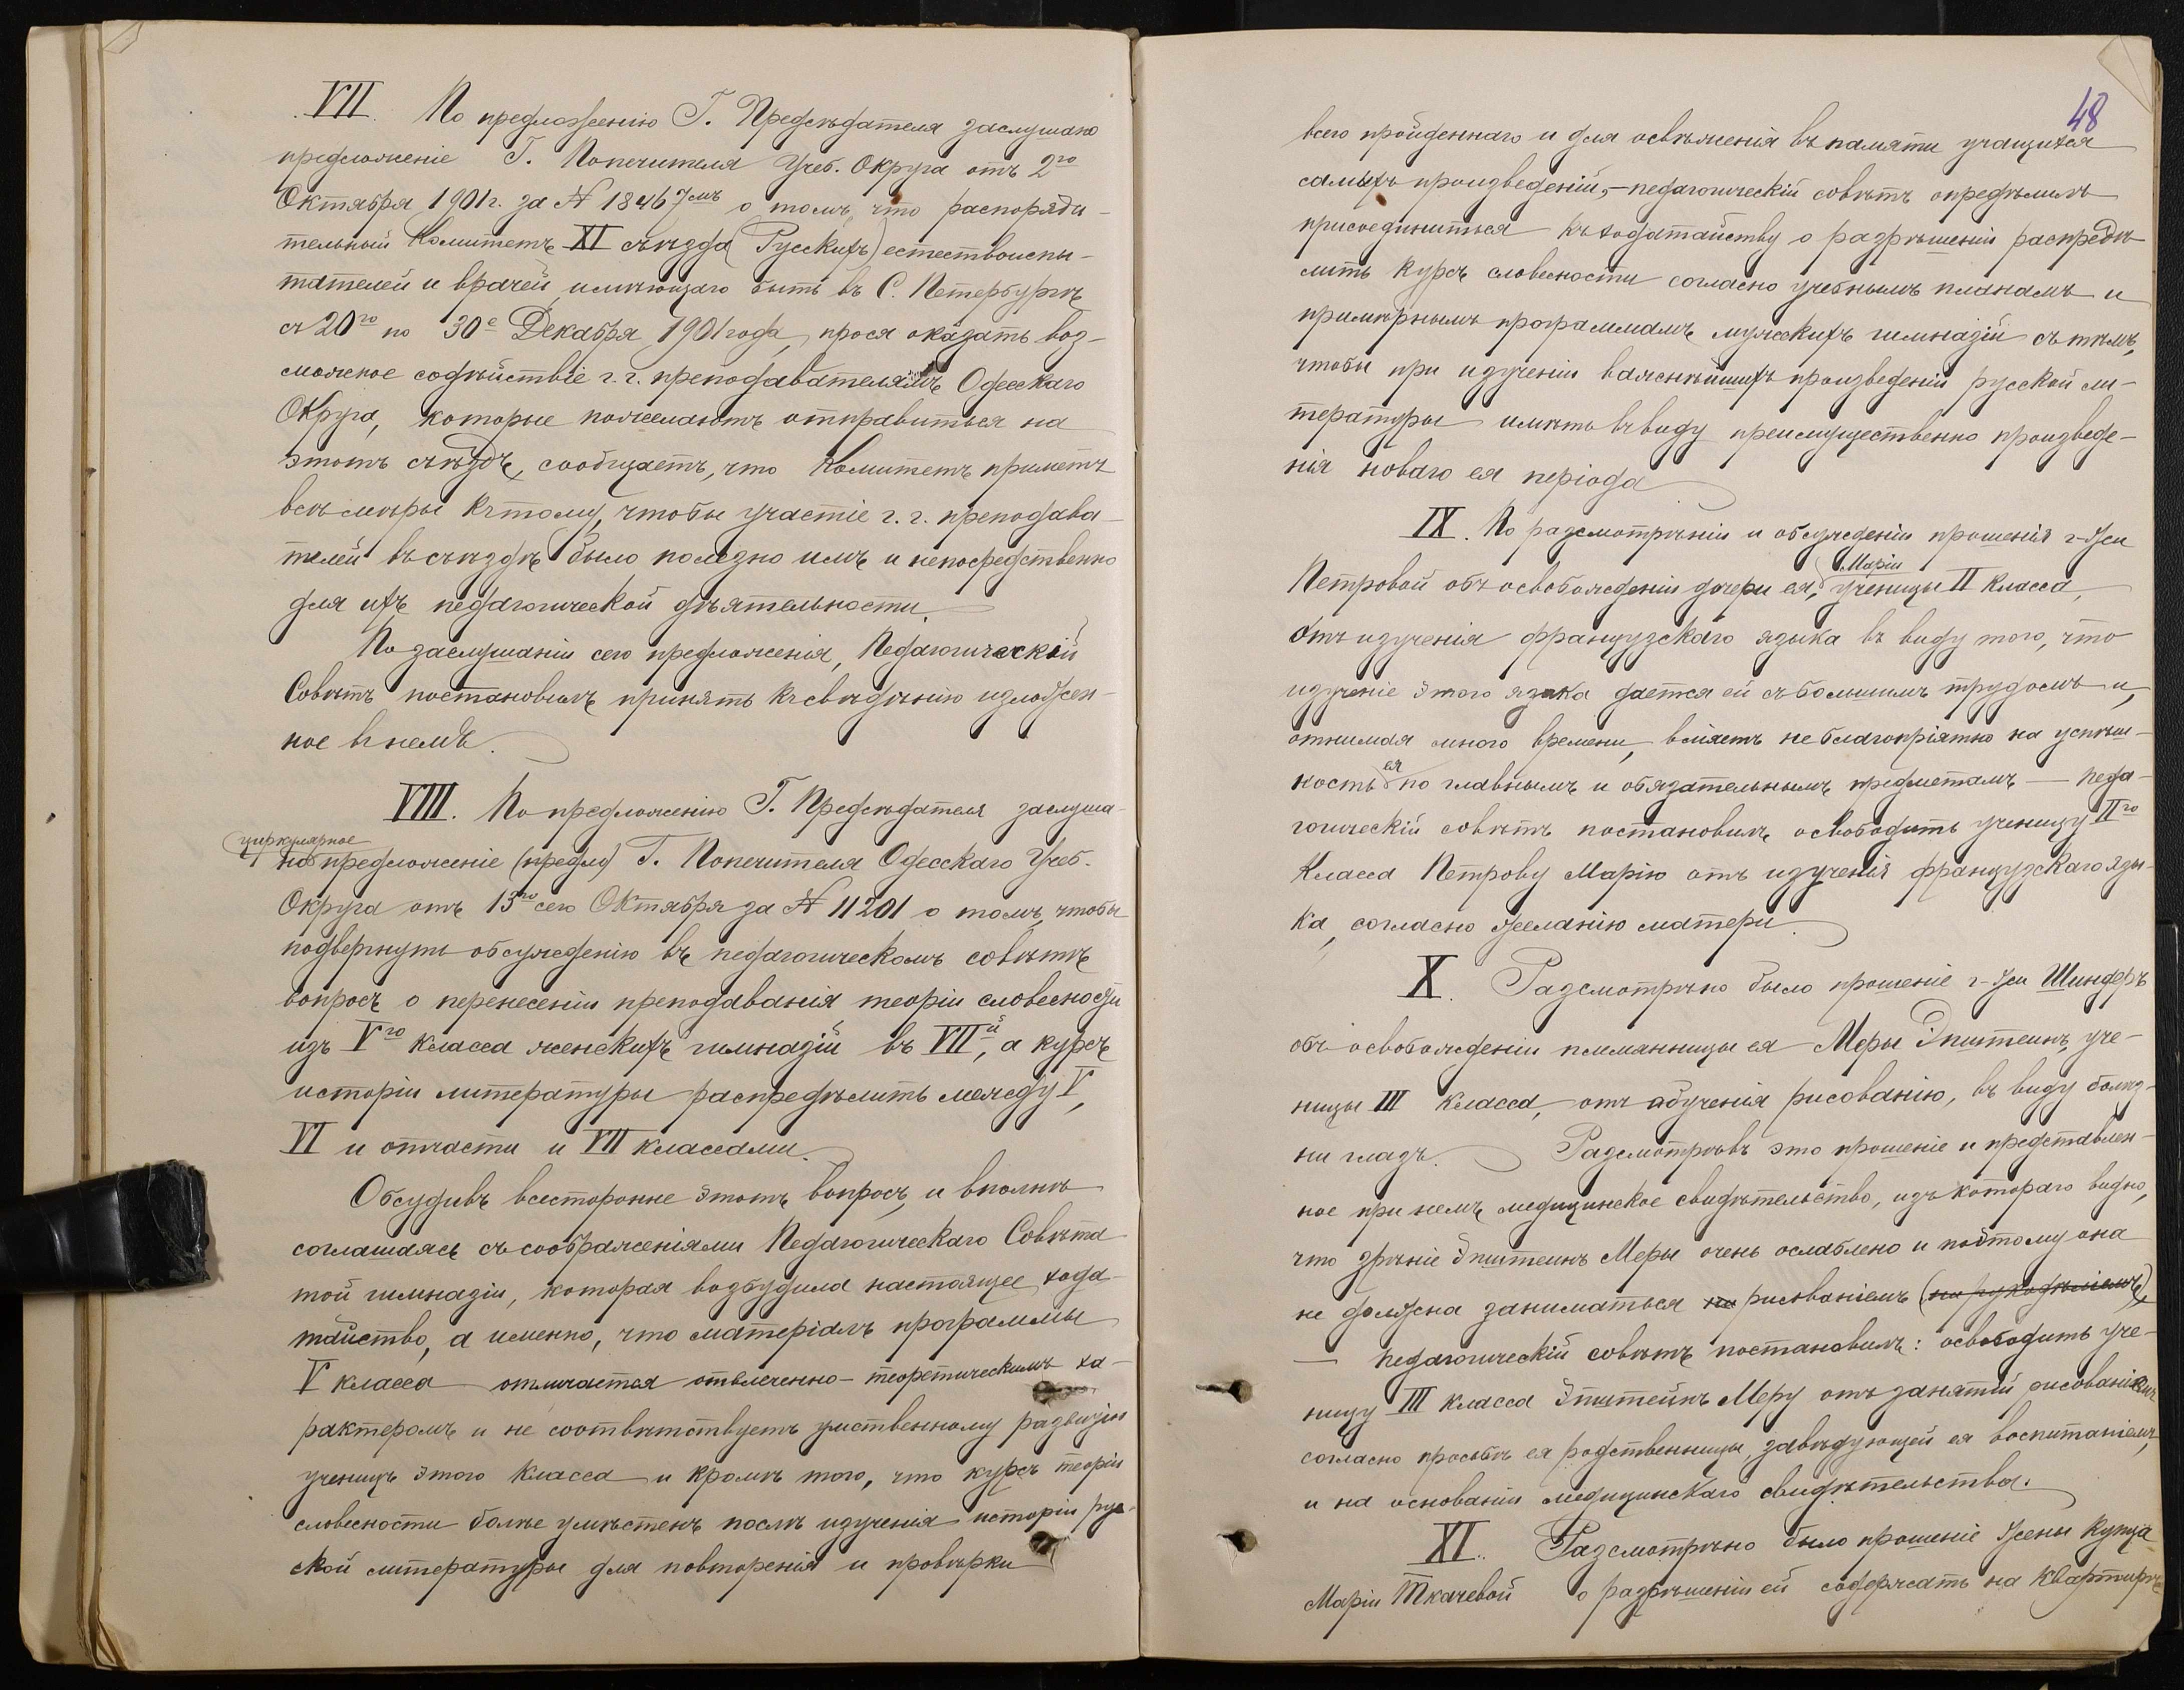 VII. По предложенію Г. Предсѣдателя заслушано
предложеніе Г. Попечителя Учеб. Округа отъ 2го
Октября 1901 г. за № 18467мъ о томъ, что распоряди-
тельный Комитетъ XI съѣзда (Русскихъ) естествоиспы-
тателей и врачей, имѣющаго быть въ С. Петербургѣ
съ 20го по 30е Декабря 1901 года, прося оказать воз-
можное содѣйствіе г. г. преподавателямъ Одесскаго
Округа, которые пожелаютъ отправиться на
этотъ съѣздъ, сообщаетъ, что Комитетъ приметъ
всѣ мѣры къ тому, чтобы участіе г. г. преподава-
телей въ съѣздѣ было полезно имъ и непосредственно
для ихъ педагогической дѣятельности.
По заслушаніи сего предложенія, Педагогическій
Совѣтъ постановилъ принять къ свѣдѣнію изложен-
ное въ немъ.
VIII. По предложенію Г. Предсѣдателя заслуша-
циркулярное
но предложеніе (предло) Г. Попечителя Одесскаго Учеб.
Округа отъ 13го сего Октября за № 11201 о томъ, чтобы
подвергнуть обсужденію въ педагогическомъ совѣтѣ
вопросъ о перенесеніи преподаванія теоріи словесности
изъ Vго класса женскихъ гимназій въ VIIй, а курсъ
исторіи литературы распредѣлить между V,
VI и отчасти и VII классами.
Обсудивъ всесторонне этотъ вопросъ, и вполнѣ
соглашаясь съ соображеніями Педагогическаго Совѣта
той гимназіи, которая возбудила настоящее хода-
тайство, а именно, что матеріалъ программы
V класса отличается отвлеченно-теоретическимъ ха-
рактеромъ и не соотвѣтствуетъ умственному развитію
ученицъ этого класса и кромѣ того, что курсъ теоріи
словесности болѣе умѣстенъ послѣ изученія исторіи рус-
ской литературы для повторенія и провѣрки
48
всего пройденнаго и для освѣженія въ памяти учащихся
самыхъ произведеній, - педагогическій совѣтъ опредѣлилъ
присоединиться къ ходатайству о разрѣшеніи распредѣ-
лить курсъ словесности согласно учебнымъ планамъ и
примѣрнымъ программамъ мужскихъ гимназій съ тѣмъ,
чтобы при изученіи важнѣйшихъ произведеній русской ли-
тературы имѣть въ виду преимущественно произведе-
нія новаго ея періода
IX. По разсмотрѣніи и обсужденіи прошенія г-жи
Маріи
Петровой объ освобожденіи дочери ея, ученицы II класса,
отъ изученія французскаго языка въ виду того, что
изученіе этого языка дается ей съ большимъ трудомъ и,
отнимая много времени, вліяетъ неблагопріятно на успѣш-
ность ея по главнымъ и обязательнымъ предметамъ — педа-
гогическій совѣтъ постановилъ, освободить ученицу IIго
Класса Петрову Марію отъ изученія французскаго язы-
ка, согласно желанію матери.
X. Разсмотрѣно было прошеніе г-жи Шиндеръ
объ освобожденіи племянницы ея Меры Эпштеинъ, уче-
ницы III класса, отъ обученія рисованію, въ виду болѣз-
ни глазъ. Разсмотрѣвъ это прошеніе и представлен-
ное при немъ медицинское свидѣтельство, изъ котораго видно,
что зрѣніе Эпштеинъ Меры очень ослаблено и поэтому она
не должна заниматься ни рисованіемъ (ни рукодѣліемъ),
— педагогическій совѣтъ постановилъ: освободить уче-
ницу III класса Эпштейнъ Меру отъ занятій рисованіемъ
согласно просьбѣ ея родственницы, завѣдующей ея воспитаніемъ,
и на основаніи медицинскаго свидѣтельства.
XI. Разсмотрѣно было прошеніе жены Купца
Маріи Ткачевой о разрѣшеніи ей содержать на квартирѣ